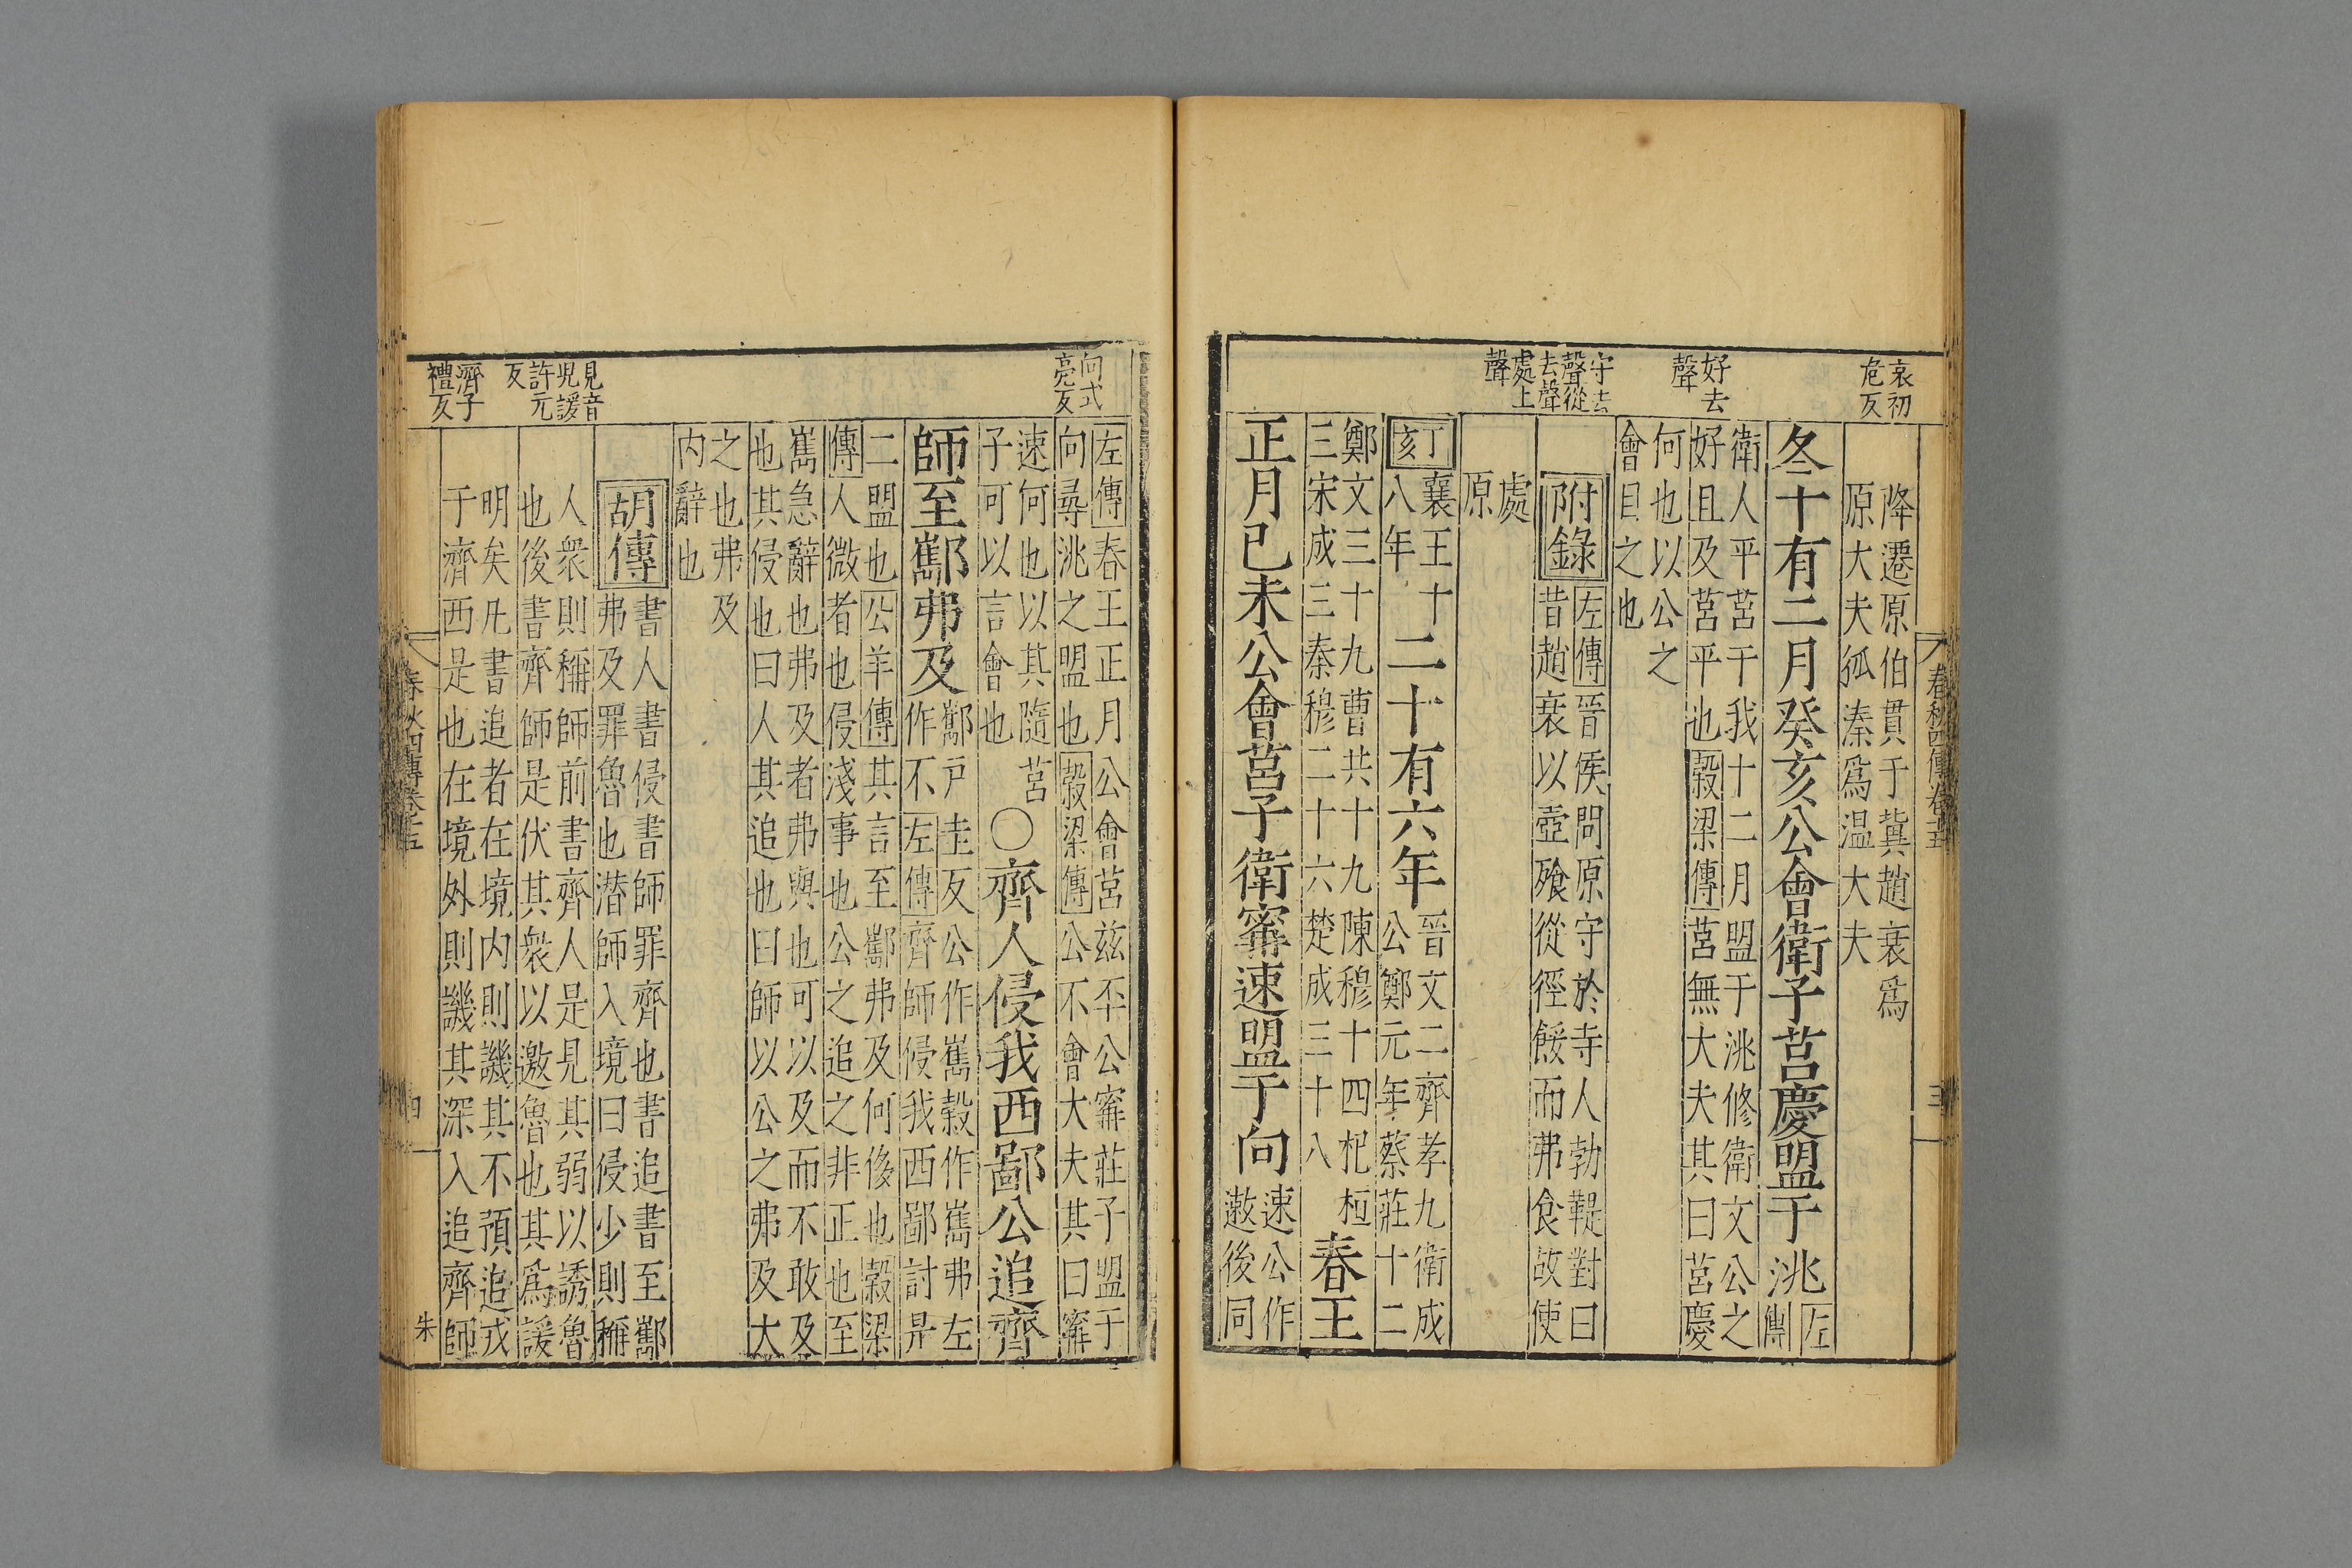 哀初
危反
好去
聲
守去
聲從
去聲
處上
聲
降遷原伯貫于冀趙衰爲
原大夫狐溱爲温大夫
冬十有二月癸亥公會衛子莒慶盟于洮
左
傳
衛人平莒于我十二月盟于洮修衛文公之
好且及莒平也穀梁傳莒無大夫其曰莒慶
何也以公之
會目之也
附錄
左傳晉侯問原守於寺人勃鞮對曰
昔趙衰以壺飱從徑餒而弗食故使
處
原
丁
亥
襄王十
八年
二十有六年
晉文二齊孝九衛成
公鄭元年蔡莊十二
鄭文三十九曹共十九陳穆十四杞桓
三宋成三秦穆二十六楚成三十八
春王
正月已未公會莒子衛甯速盟于向
速公作
遬後同
春秋四傳卷十五
三
向式
亮反
見音
児諼
許元
反
濟子
禮反
左傳春王正月公會莒兹㔻公甯莊子盟于
向尋洮之盟也穀梁傳公不會大夫其曰甯
速何也以其隨莒
子可以言會也
○齊人侵我西鄙公追齊
師至酅弗及
酅戸圭反公作巂穀作巂弗左
作不左傳齊師侵我西鄙討是
二盟也公羊傳其言至酅弗及何侈也穀梁
傳人微者也侵淺事也公之追之非正也至
巂急辭也弗及者弗與也可以及而不敢及
也其侵也曰人其追也曰師以公之弗及大
之也弗及
内辭也
胡傳
書人書侵書師罪齊也書追書至酅
弗及罪魯也潜師入境曰侵少則稱
人衆則稱師前書齊人是見其弱以誘魯
也後書齊師是伏其衆以邀魯也其爲諼
明矣凡書追者在境内則譏其不預追戎
于濟西是也在境外則譏其深入追齊師
春秋四傳卷十五
四
朱